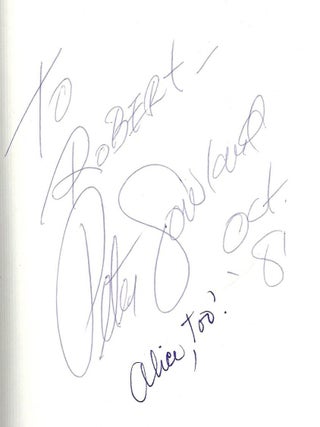 To
Robert—
Peter Gowland
Oct.
'81
Alice, too!